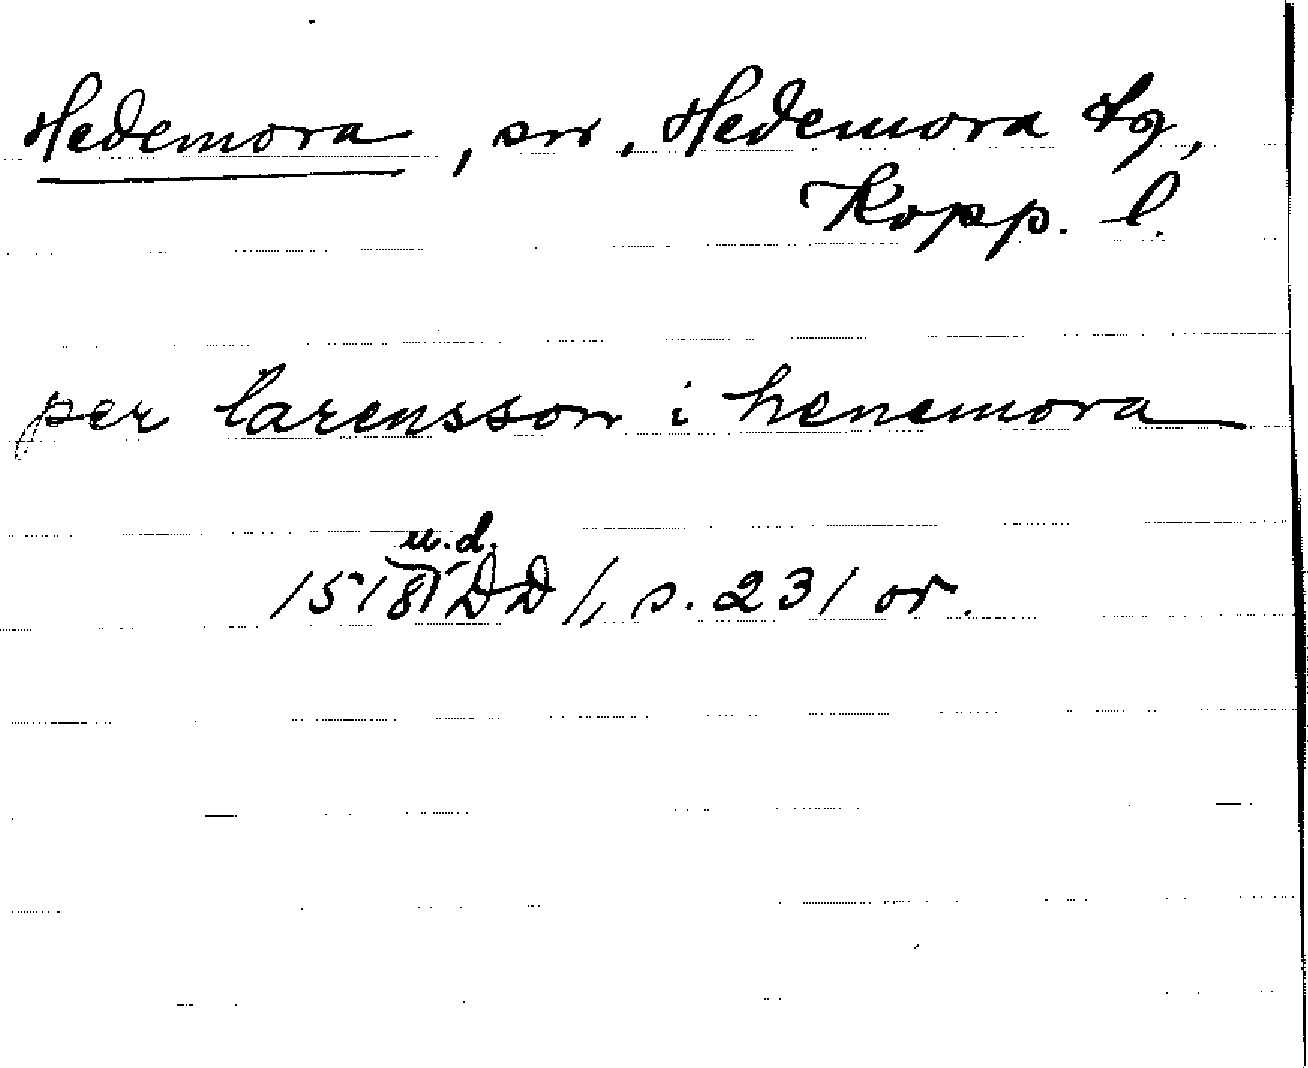 Hedemora, sn, Hedemora tg,
Kopp. l.
per larensson i henemora
u.d.
1518 DD 1, s. 231 or.